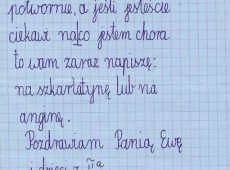 potwornie, a jeśli jesteście
ciekawi na co jestem chora
to wam zaraz napiszę:
na szkarlatynę lub na
anginę.
Pozdrawiam Panią Ewę
i dzieci z IIa